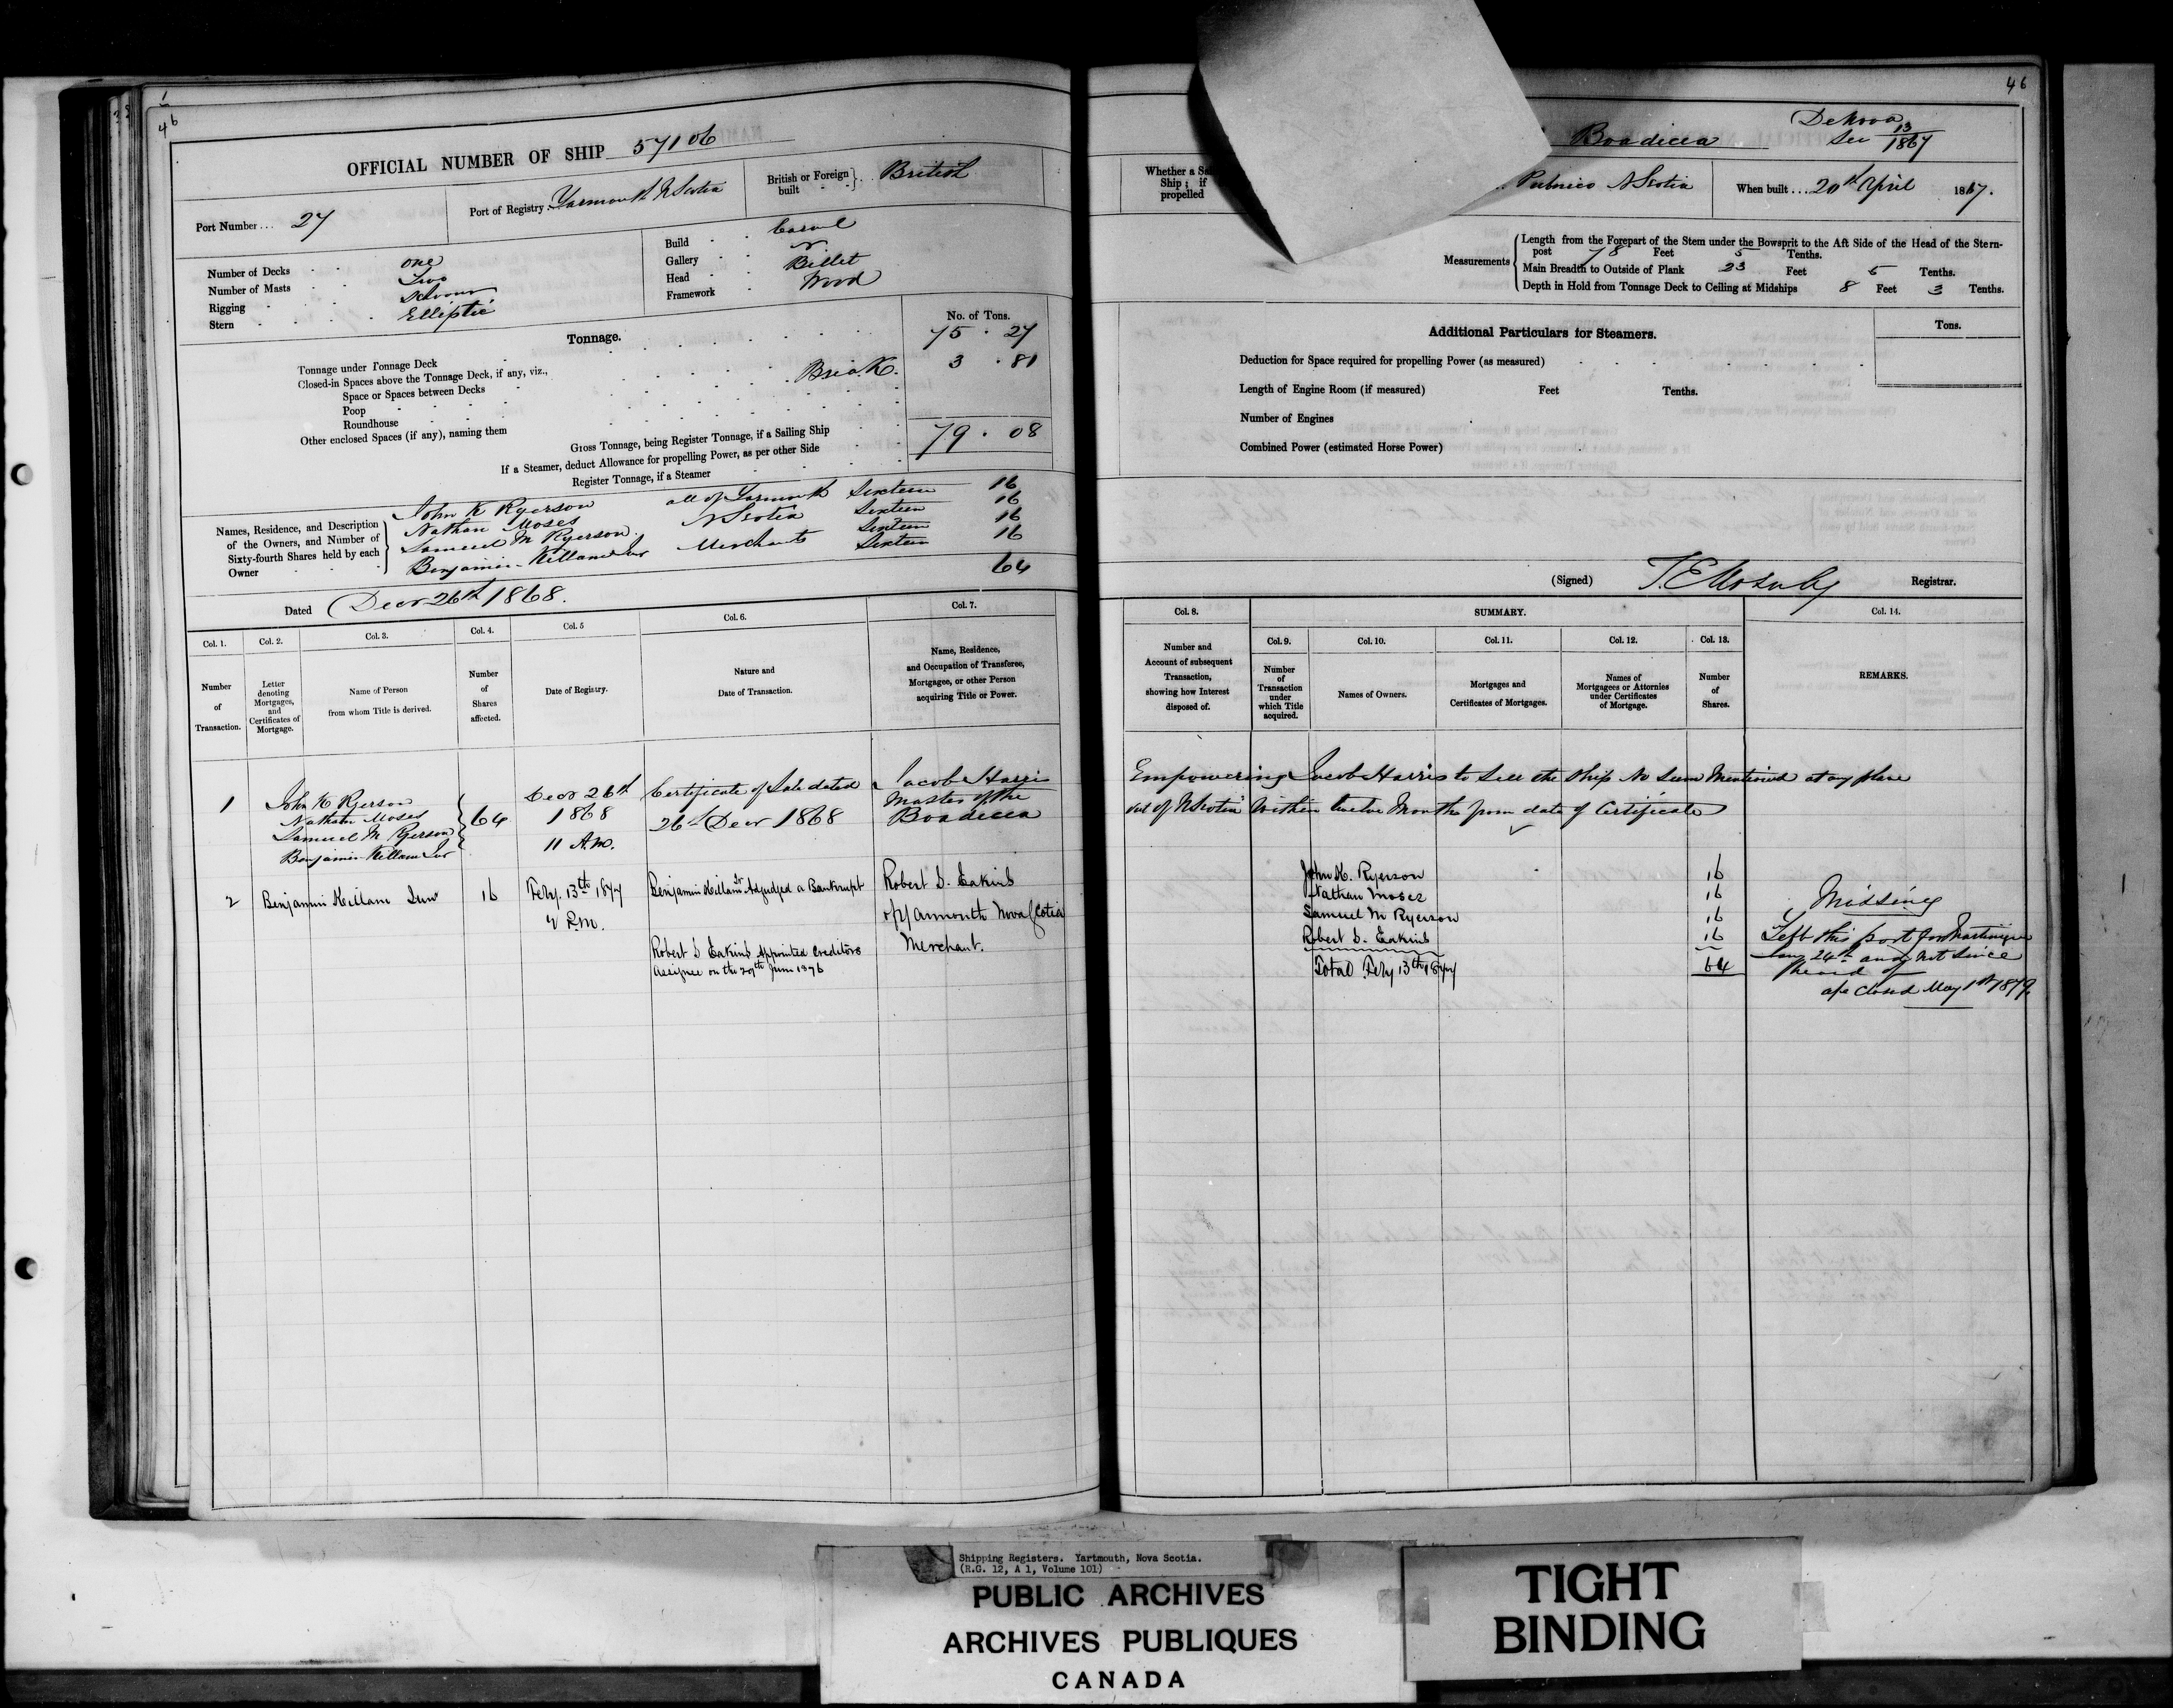 1
46
OFFICIAL NUMBER OF SHIP 57106
Port Number ... 27
Port of Registry Yarmouth N Scotia
British or Foreign built British
Number of Decks one
Number of Masts Two
Rigging Schooner
Stern Elliptic
Build Carvel
Gallery
Head Billet
Framework Wood
Tonnage.
No. of Tons.
Tonnage under Tonnage Deck 75 . 27
Closed-in Spaces above the Tonnage Deck, if any, viz., Break. 3 . 81
Space or Spaces between Decks
Poop
Roundhouse
Other enclosed Spaces (if any), naming them
Gross Tonnage, being Register Tonnage, if a Sailing Ship 79 . 08
If a Steamer, deduct Allowance for propelling Power, as per other Side
Register Tonnage, if a Steamer
Names, Residence, and Description of the Owners, and Number of Sixty-fourth Shares held by each Owner
John K Ryerson all of Yarmouth Sixteen 16
Nathan Moses N Scotia Sixteen 16
Samuel M Ryerson Sixteen 16
Benjamin Killam Jnr Merchants Sixteen 16
64
Dated Decr 26th 1868.
Col. 1. Col. 2. Col. 3. Col. 4. Col. 5 Col. 6. Col. 7.
Number of Transaction.
Letter denoting Mortgages, and Certificates of Mortgage.
Name of Person from whom Title is derived.
Number of Shares affected.
Date of Registry.
Nature and Date of Transaction.
Name, Residence, and Occupation of Transferee, Mortgagee, or other Person acquiring Title or Power.
1
John K Ryerson
Nathan Moses
Samuel M Ryerson
Benjamin Killam Jnr
64
Decr 26th
1868
11 A.M.
Certificate of Sale dated
26th Decr 1868
Jacob Harris
Master of the
Boadicea
2 Benjamin Killam Junr 16
Feby. 13th 1877
4 P.M.
Benjamin Killam Jr Adjudged a Bankrupt
Robert S Eakins appointed Creditors
Assignee on the 29th June 1876
Robert S. Eakins
of Yarmouth Nova Scotia
Merchant.
46
Boadicea
De Novo
See 13/1867
Whether a Sai
Ship; if
propelled
Pubnico N Scotia
When built ... 20th April 1867.
Measurements
Length from the Forepart of the Stem under the Bowsprit to the Aft Side of the Head of the Stern-
post 78 Feet 5 Tenths.
Main Breadth to Outside of Plank 23 Feet 5 Tenths.
Depth in Hold from Tonnage Deck to Ceiling at Midships 8 Feet 3 Tenths.
Additional Particulars for Steamers.
Tons.
Deduction for Space required for propelling Power (as measured)
Length of Engine Room (if measured) Feet Tenths.
Number of Engines
Combined Power (estimated Horse Power)
(Signed) Registrar.
Col. 8. SUMMARY. Col. 14.
Col. 9. Col. 10. Col. 11. Col. 12. Col. 13.
Number and Account of subsequent Transaction, showing how Interest disposed of.
Number of Transaction under which Title acquired.
Names of Owners.
Mortgages and Certificates of Mortgages.
Names of Mortgagees or Attornies under Certificates of Mortgage.
Number of Shares.
REMARKS.
Empowering Jacob Harris to Sell the Ship No Sum Mentioned at any place
out of N Scotia within twelve Months from date of Certificate
John K. Ryerson 16
Nathan Moses 16
Samuel M Ryerson 16
Robert S. Eakins 16
Total Feby 13th 1877 64
Missing
Left this port for Martinique
Jany 24th and not since
heard of
a/c Closed May 1st 1879.
Shipping Registers. Yartmouth, Nova Scotia.
(R.G. 12, A 1, Volume 101)
PUBLIC ARCHIVES
ARCHIVES PUBLIQUES
CANADA
TIGHT
BINDING